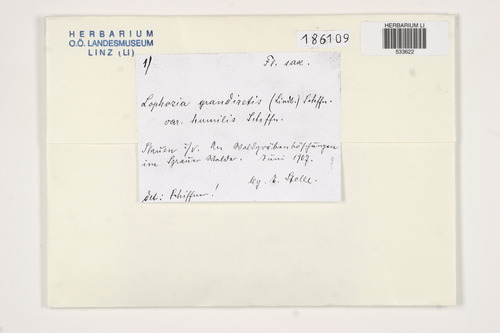 HERBARIUM
O.Ö. LANDESMUSEUM
LINZ (LI)
186109
HERBARIUM LI
533622
1)
Fl. sax.
Lophozia grandiretis (Lindb.) Schiffn.
var. humilis Schiffn.
Plauen i/V. An Waldgrabenböschungen
im Walde. Juni 1907.
leg. E. Stolle.
det: Schiffner!